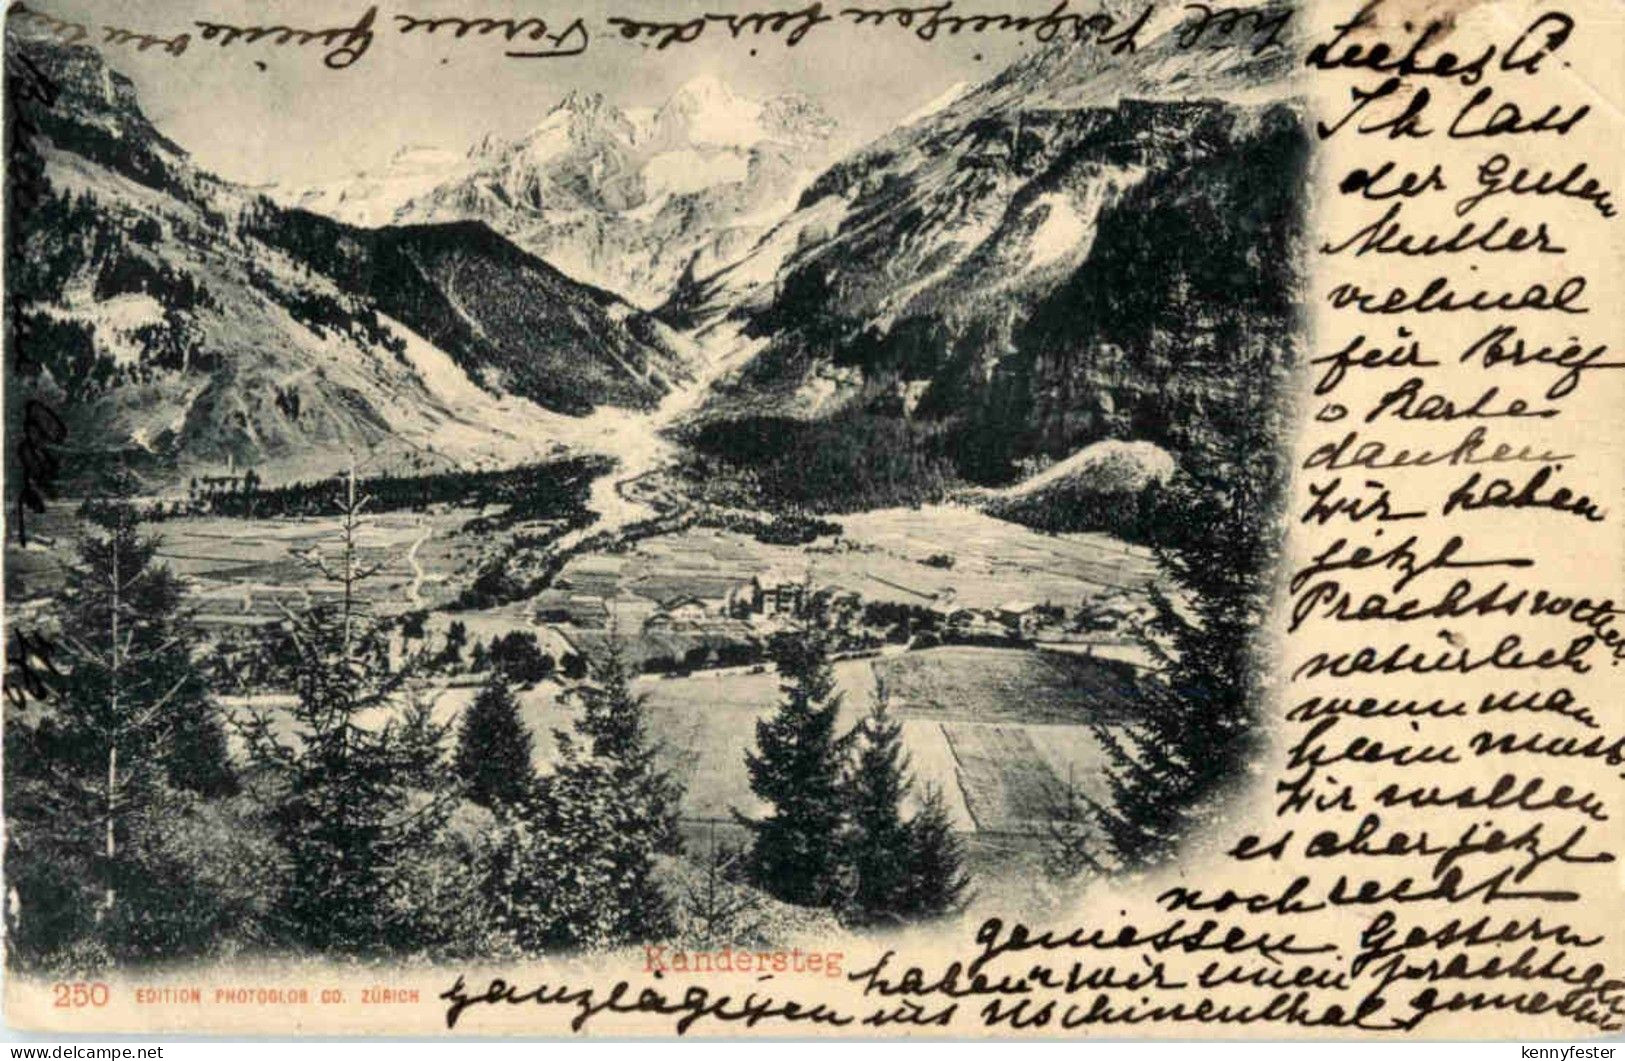 Liebes A.
Ich lass
der Guten
Mutter
vielmal
für Brief
o Karte
danken
Wir haben
jetzt
Prachtswetter.
natürlich
wenn man
heim muss.
Wir wollen
es aber jetzt
noch recht
geniessen Gestern
haben wir einen prachtigen
ganztägigen ins Oschinenthal gemacht
viel Vergnügen für die Ferien
Kandersteg
250 EDITION PHOTOGLOB CO. ZÜRICH
kennyfester
www.delcampe.net